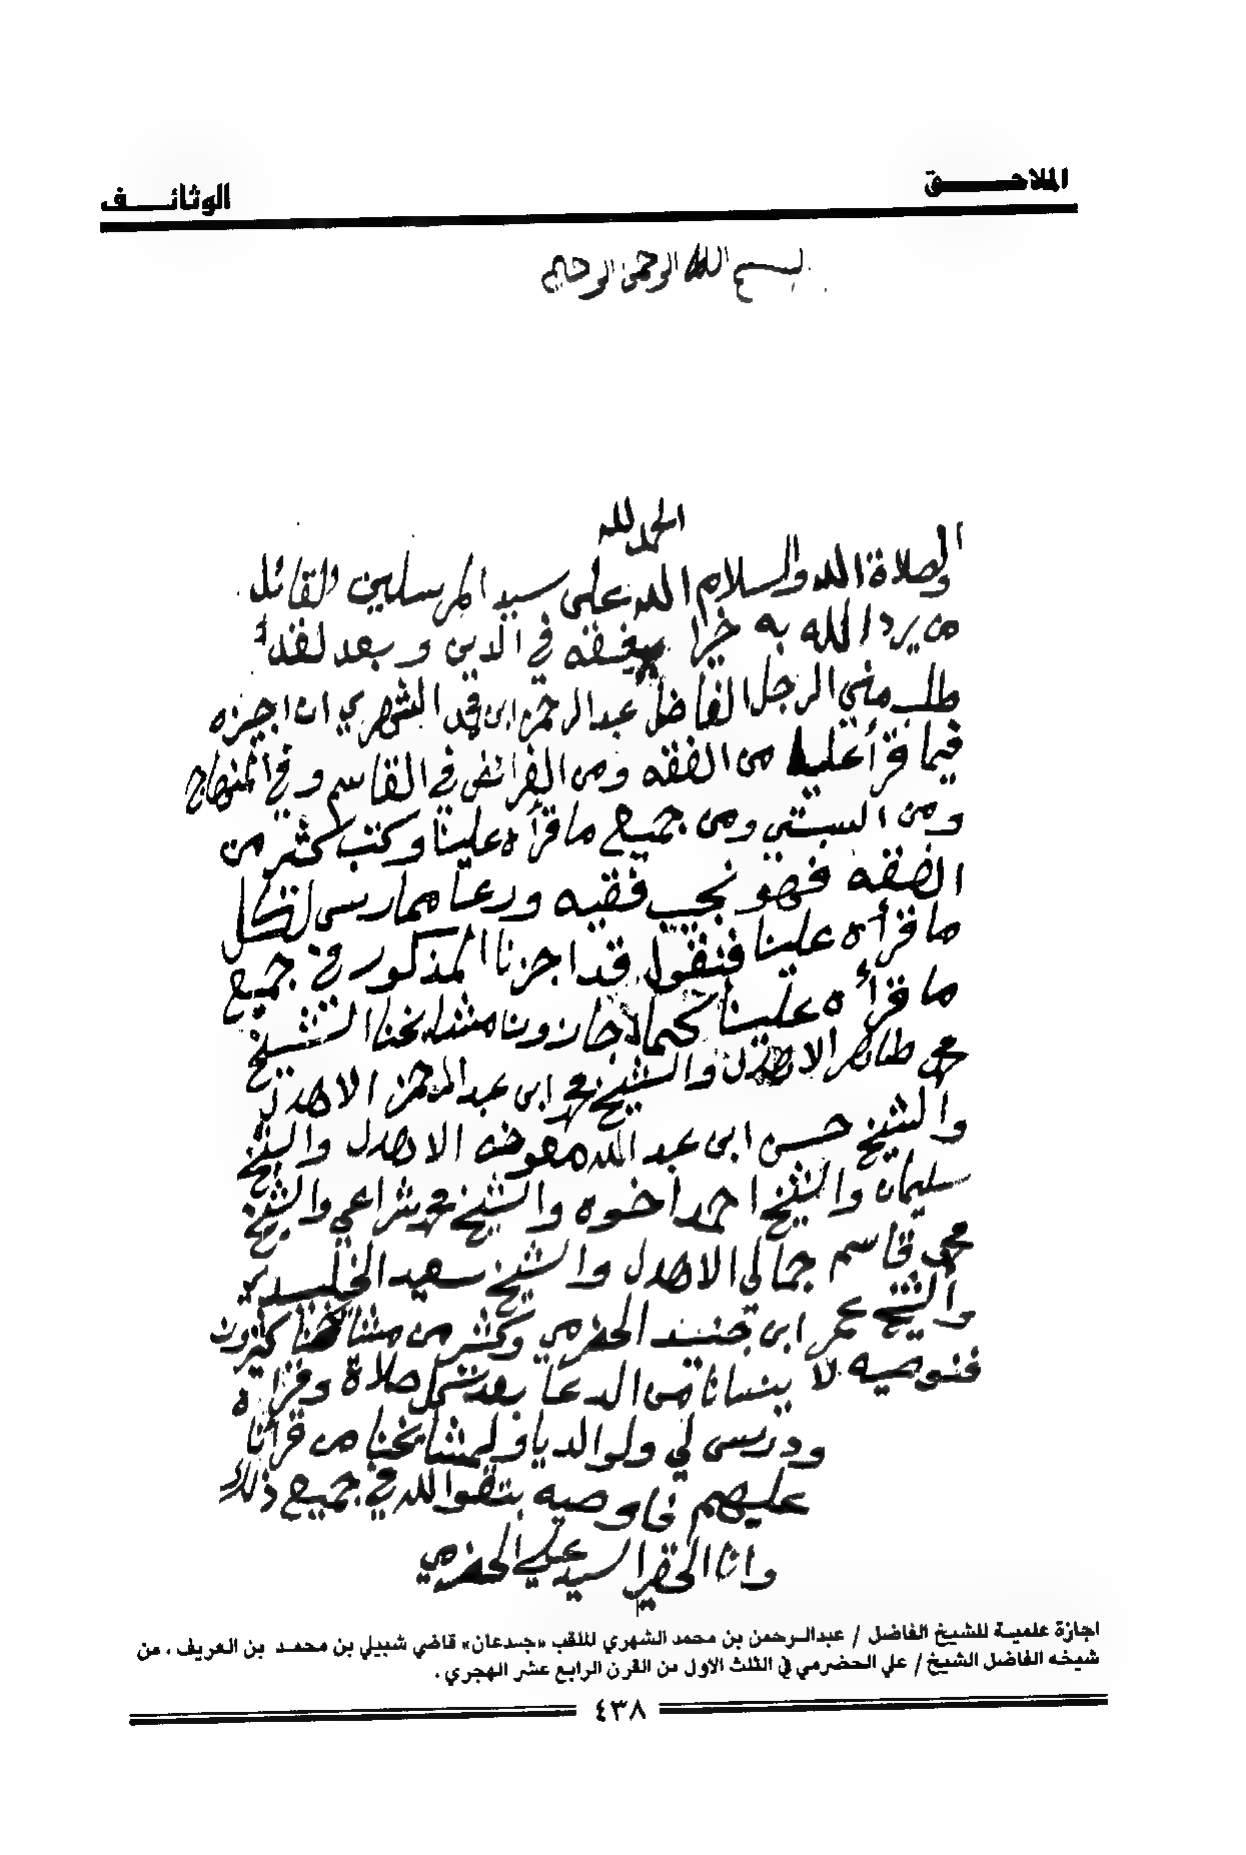 الملاحـــــق
الوثائـــف
بسم الله الرحمن الرحيم
الحمد لله
والصلاة الله والسلام الله على سيد المرسلين القائل
من يرد الله به خيرا يفقه في الدين وبعد لقد
طلب مني الرجل الفاضل عبدالرحمن ابن محمد الشهري ان اجيزه
فيما قرأ عليا من الفقه ومن الفرائض في القاسم وفي المنهاج
ومن البستي ومن جميع ما قرأه علينا وكتب كثير من
الفقه فهو نجيب فقيه ودعا ممارس لكل
ما قرأه علينا فنقول قد اجزنا المذكور في جميع
ما قرأه علينا كما اجازونا مشايخنا الشيخ
محمد طاهر الاهدل والشيخ محمد ابن عبدالرحمن الاهدل
والشيخ حسن ابن عبدالله معوضه الاهدل والشيخ
سليمان والشيخ احمد اخوه والشيخ محمد شراعي والشيخ
محمد قاسم جمالي الاهدل والشيخ سعيد الخليدي
والشيخ عمر ابن جنيد الحضرمي وكثير من مشائخنا كثيرون
فنوصيه لا ينسانا من الدعا بعد كل صلاة وقراه
ودرس لي ولوالديا ولمشايخنا من قرأنا
عليهم فاوصيه بتقوا الله في جميع ذلك
وانا الحقير السيد علي الحضرمي
اجازة علمية للشيخ الفاضل / عبدالرحمن بن محمد الشهري الملقب «جدعان» قاضي شبيلي بن محمد بن العريف ، من
شيخه الفاضل الشيخ / علي الحضرمي في الثلث الأول من القرن الرابع عشر الهجري .
٤٣٨